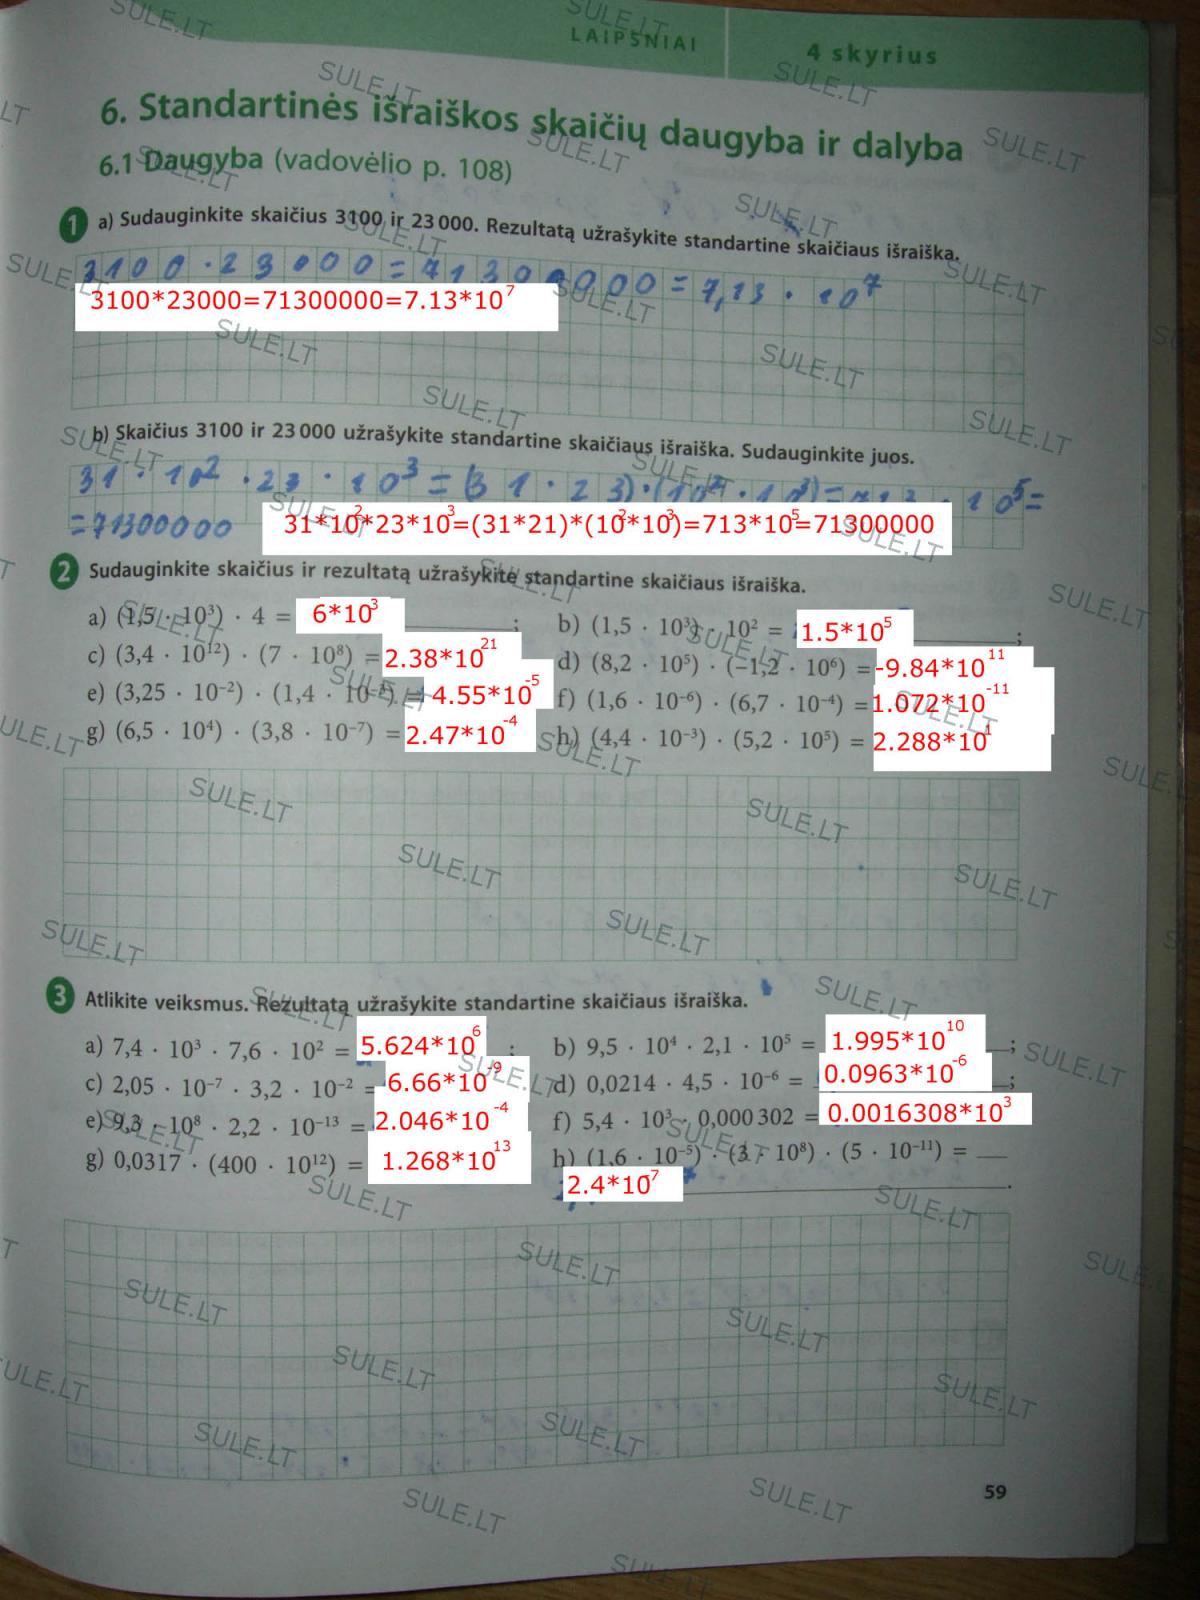 LAIPSNIAI
4 skyrius
6. Standartinės išraiškos skaičių daugyba ir dalyba
6.1 Daugyba (vadovėlio p. 108)
1 a) Sudauginkite skaičius 3100 ir 23 000. Rezultatą užrašykite standartine skaičiaus išraiška.
3100 · 23000 = 71300000 = 7,13 · 10⁷
3100*23000=71300000=7.13*10⁷
b) Skaičius 3100 ir 23 000 užrašykite standartine skaičiaus išraiška. Sudauginkite juos.
31 · 10² · 23 · 10³ = (31 · 23) · (10² · 10³) = 713 · 10⁵ =
= 71300000
31*10²*23*10³=(31*21)*(10²*10³)=713*10⁵=71300000
2 Sudauginkite skaičius ir rezultatą užrašykite standartine skaičiaus išraiška.
a) (1,5 · 10³) · 4 = 6*10³ ; b) (1,5 · 10³) · 10² = 1.5*10⁵ ;
c) (3,4 · 10¹²) · (7 · 10⁸) = 2.38*10²¹ d) (8,2 · 10⁵) · (−1,2 · 10⁶) = -9.84*10¹¹
e) (3,25 · 10⁻²) · (1,4 · = 4.55*10⁻⁵ f) (1,6 · 10⁻⁶) · (6,7 · 10⁻⁴) = 1.072*10⁻¹¹
g) (6,5 · 10⁴) · (3,8 · 10⁻⁷) = 2.47*10⁻⁴ h) (4,4 · 10⁻³) · (5,2 · 10⁵) = 2.288*10¹
3 Atlikite veiksmus. Rezultatą užrašykite standartine skaičiaus išraiška.
a) 7,4 · 10³ · 7,6 · 10² = 5.624*10⁶ ; b) 9,5 · 10⁴ · 2,1 · 10⁵ = 1.995*10¹⁰ ;
c) 2,05 · 10⁻⁷ · 3,2 · 10⁻² = 6.66*10⁻⁹ d) 0,0214 · 4,5 · 10⁻⁶ = 0.0963*10⁻⁶ ;
e) 9,3 · 10⁸ · 2,2 · 10⁻¹³ = 2.046*10⁻⁴ f) 5,4 · 10³ · 0,000 302 = 0.0016308*10³
g) 0,0317 · (400 · 10¹²) = 1.268*10¹³ h) (1,6 · 10⁻⁵) · (3 · 10⁸) · (5 · 10⁻¹¹) =
2.4*10⁻⁷ .
59
SULE.LT